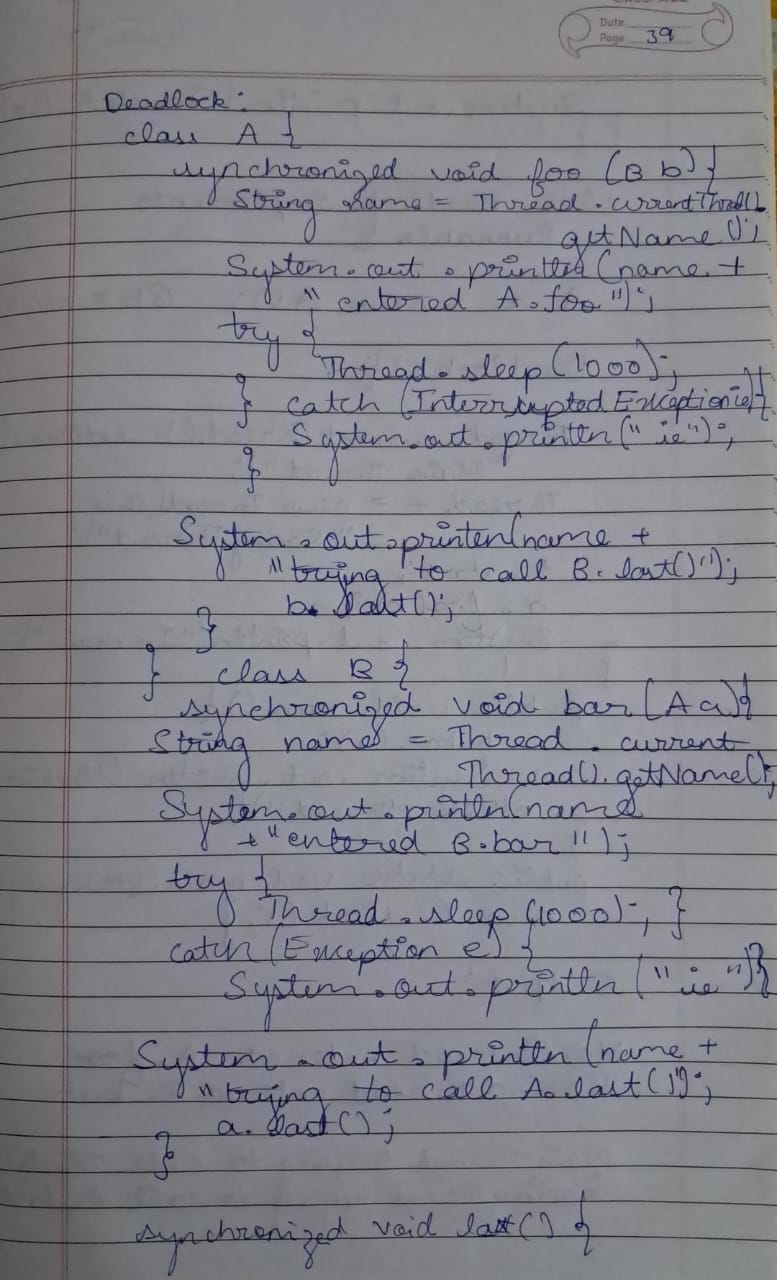 Date
Page 39
Deadlock:
class A {
synchronized void foo (B b) {
String name = Thread.currentThread().
getName();
System.out.println (name +
" entered A.foo");
try {
Thread.sleep (1000);
} catch (InterruptedException ie) {
System.out.println (" ie");
}
System.out.println(name +
"trying to call B.last()");
b.last();
}
} class B {
synchronized void bar (A a) {
String name = Thread.current
Thread().getName();
System.out.println(name
+ "entered B.bar");
try {
Thread.sleep (1000); }
catch (Exception e) {
System.out.println (" ie") }
System.out.println (name +
"trying to call A.last()");
a.last();
}
synchronized void last() {